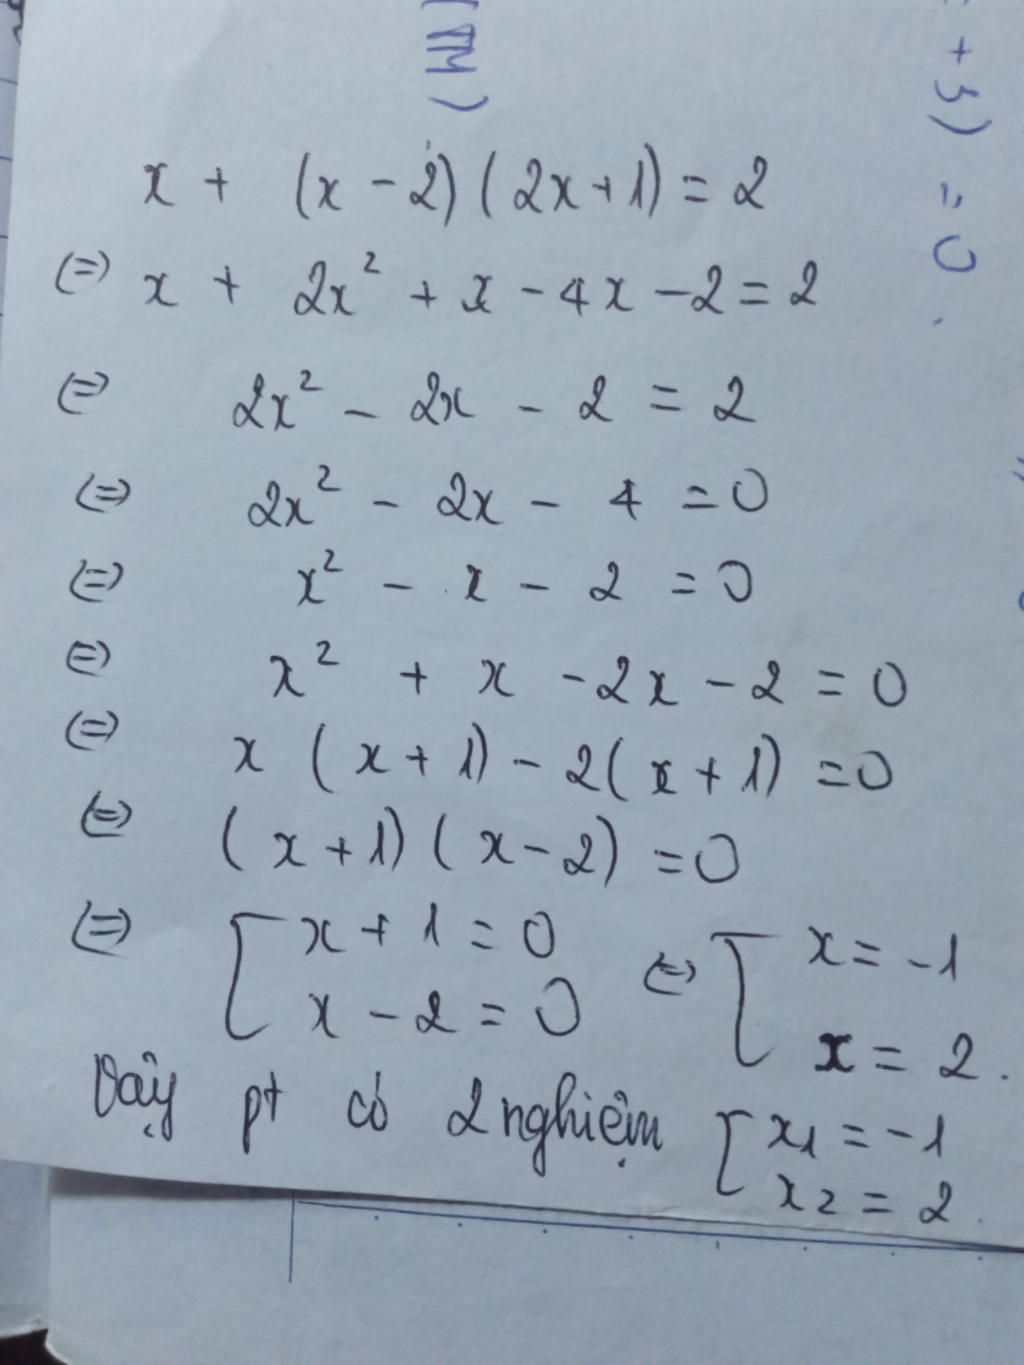 (TM)
+ 3) = 0.
x + (x - 2)(2x + 1) = 2
(=) x + 2x² + x - 4x - 2 = 2
(=) 2x² - 2x - 2 = 2
(=) 2x² - 2x - 4 = 0
(=) x² - x - 2 = 0
(=) x² + x - 2x - 2 = 0
(=) x (x + 1) - 2(x + 1) = 0
(=) (x + 1)(x - 2) = 0
(=) [ x + 1 = 0 (=) [ x = -1
x - 2 = 0 x = 2.
Vậy pt có 2 nghiệm [ x₁ = -1
x₂ = 2.